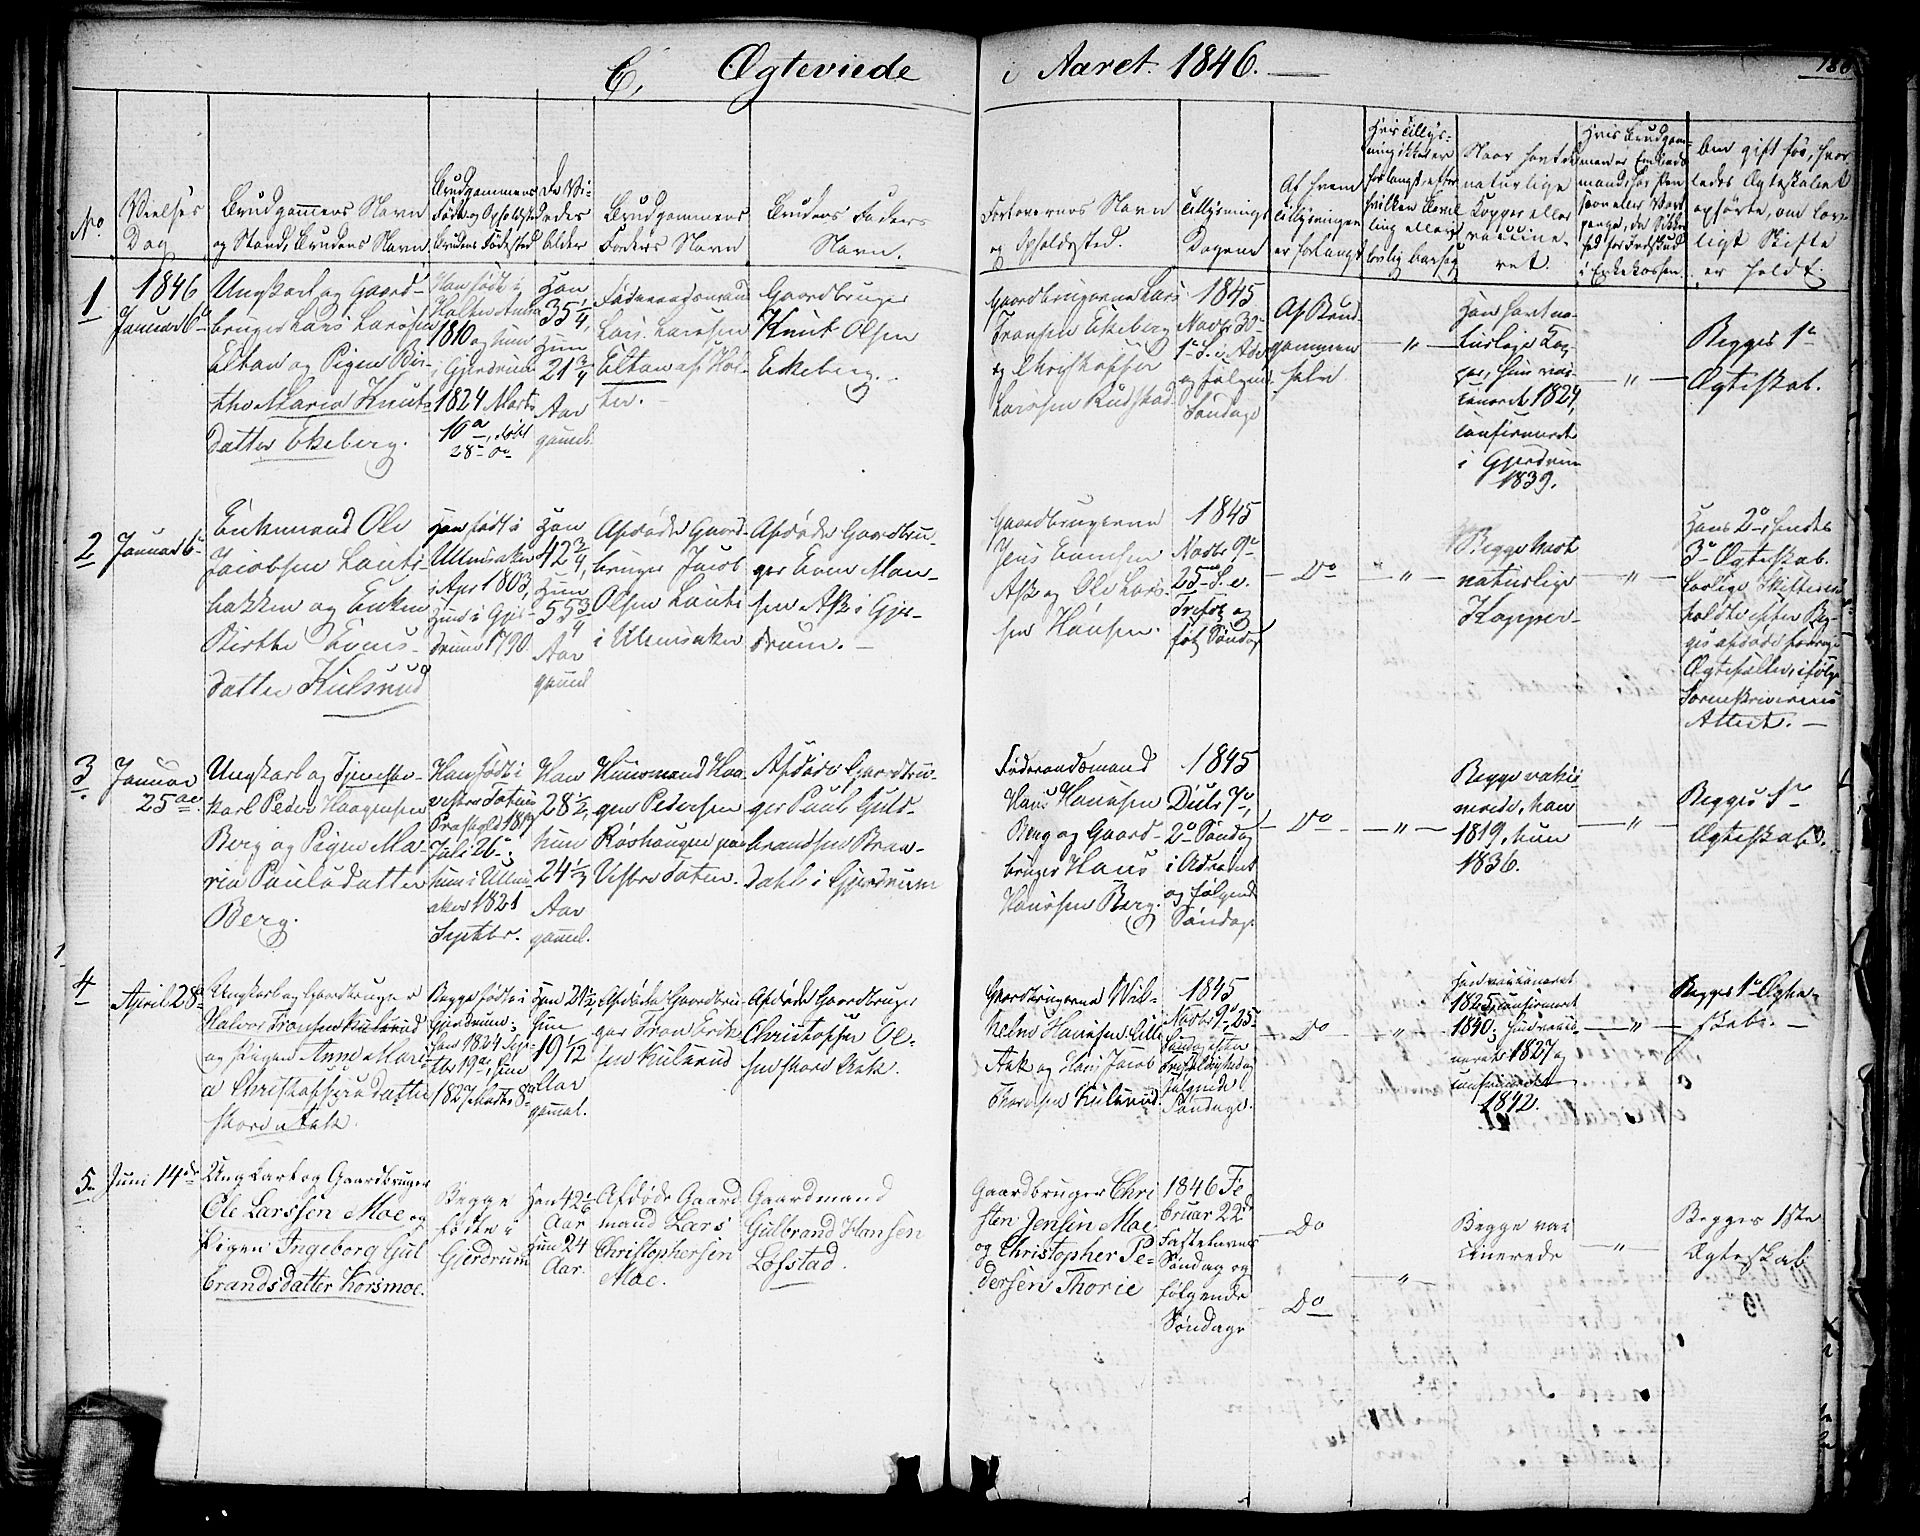 C, Ægteviede i Aaret 1846.
186
No
Vielses
Dag
Brudgommens Navn
og Stand, Brudens Navn
Brudgommens
Føde og Opholdsted
Brudens Fødested
De Vi-
edes
Alder
Brudgommens
Faders Navn
Brudens Faders
Navn.
Forlovernes Navn
og Opholdssted.
Tillysnings
Dagene
Af hvem
Tillysningen
er forlangt
Hvis Tillys-
ning ikke er
forlangt, efter
hvilken Bevil
ling eller
lovlig
Naar havt de
naturlige
Kopper eller
vaccine-
ret.
Hvis Brudgom-
men er Enkeds
mand, hos
i Enkekassen.
Om gift før, hvor-
ledes Ægteskabet
ophørte, om lov-
ligt Skifte
er holdt.
1
1846
Januar 6te
Ungkarl og Gaard-
bruger Lars Larssen
Eltun og Pigen Bir-
the Maria Knuts-
datter Ekeberg.
Han født i
Holter
1810 og hun
i Gjerdrum
1824 Marts
10de, døbt
28de do
Han
35 1/4,
Hun
21 3/4
Aar
gamel.
Føderaadsmand
Lars Larssen
Eltun af Hol-
ter.
Gaardbruger
Knut Olsen
Ekeberg.
Gaardbrugerne Lars
Fransen Ekeberg
og Christopher
Larssen Rudstad
1845
Novbr 30te
1te S. i Adv.
og følgende
Søndage
Af Brud-
gommen
selv.
"
Han havt na-
turlige Kop-
per, hun vac-
cineret 1824,
confirmeret
i Gjerdrum
1839.
"
Begges 1te
Ægteskab.
2
Januar 6te
Enkemand Ole
Jacobsen Laute-
bakken og Enken
Birthe Evens-
datter Kulsrud
Han født i
Ullensaker
i Apr 1803,
Hun i Gjer-
drum 1790.
Han
42 3/4,
Hun
55 3/4
Aar
gamel
Afdøde Gaard-
bruger Jacob
Olsen Laute
i Ullensaker
Afdøde Gaardbru-
ger Even Mon-
sen Ask i Gjer-
drum.
Gaardbrugerne
Jens Evensen
Ask og Ole Lars-
sen Hansen.
1845
Novbr 9de
25de S. e.
Trefol og
føl Søndag
Do
"
Begge havt
naturlige
Kopper
"
Hans 2de, hendes
3de Ægteskab.
Lovlige Skifter er
holdte efter Beg-
ges afdøde forrige
Ægtefæller, ifølge
Sorenskriverens
Attest.
3.
Januar
25de
Ungkarl og Tjeneste-
karl Peder Haagensen
Berg og Pigen Ma-
ria Paulsdatter
Berg.
Han født i
vestre Totens
Præstegjeld 1817
Juli 26de,
hun i Ullens-
aker 1821
Septbr.
Han
28 1/2,
hun
24 1/3
Aar
gamel.
Huusmand Haa-
gen Pedersen
Røshaugen paa
Vestre Toten.
Afdøde Gaardbru-
ger Paul Guld-
brandsen Bran-
dahl i Gjerdrum
Føderaadsmand
Hans Hanssen
Berg og Gaard-
bruger Hans
Hanssen Berg.
1845
Decbr 7de,
2de Søndag
i Advent
og følgende
Søndage
Do
"
Begge vacci-
nerede, han
1819, hun
1836.
"
Begges 1te
Ægteskab.
4
April 28de
Ungkarl og Gaardbruger
Halvor Fronsen Kulsrud
og Pigen Anne Mari-
a Christophersdatter
Store Ask.
Begge fødte i
Gjerdrum;
han 1824 Sep-
tbr 19de, hun
1827 Novbr 8de
Han 21 1/2,
Hun
19 1/12
Aar
gamal.
Afdøde Gaardbru-
ger Fron Erik-
sen Kulsrud
Afdøde Gaardbruger
Christopher Ol-
sen store Ask.
Gaardbrugerne Wil-
helm Hanssen Lille
Ask og Hans Jacob
Thoresen Kulsrud.
1845
Novbr 9de, 25de
Søndag efter
Trefoldighed og
følgende
Søndage.
Do
"
Han vaccineret
1825, confirmeret
1840; hun vacci-
neret 1827 og
confirmeret
1842.
"
Begges 1te Ægte-
skab.
5
Juni 14de
Ungkarl og Gaardbruger
Ole Larssen Moe og
Pigen Ingeborg Gul
brandsdatter Korsmoe.
Begge
fødte i
Gjerdrum
Han 42 1/6
Aar
Hun 24
Aar.
Afdøde Gaard
mand Lars
Christophersen
Moe.
Gaardmand
Gulbrand Hansen
Løfstad.
Gaardbruger Chri
sten Jensen Moe
og Christopher Pe-
dersen Thorie
1846 Fe
bruar 22de
Fastelavns
Søndag og
følgende
Søndage
Do
Do
"
Begge vac
cinerede
"
Begges 1ste
Ægteskab.